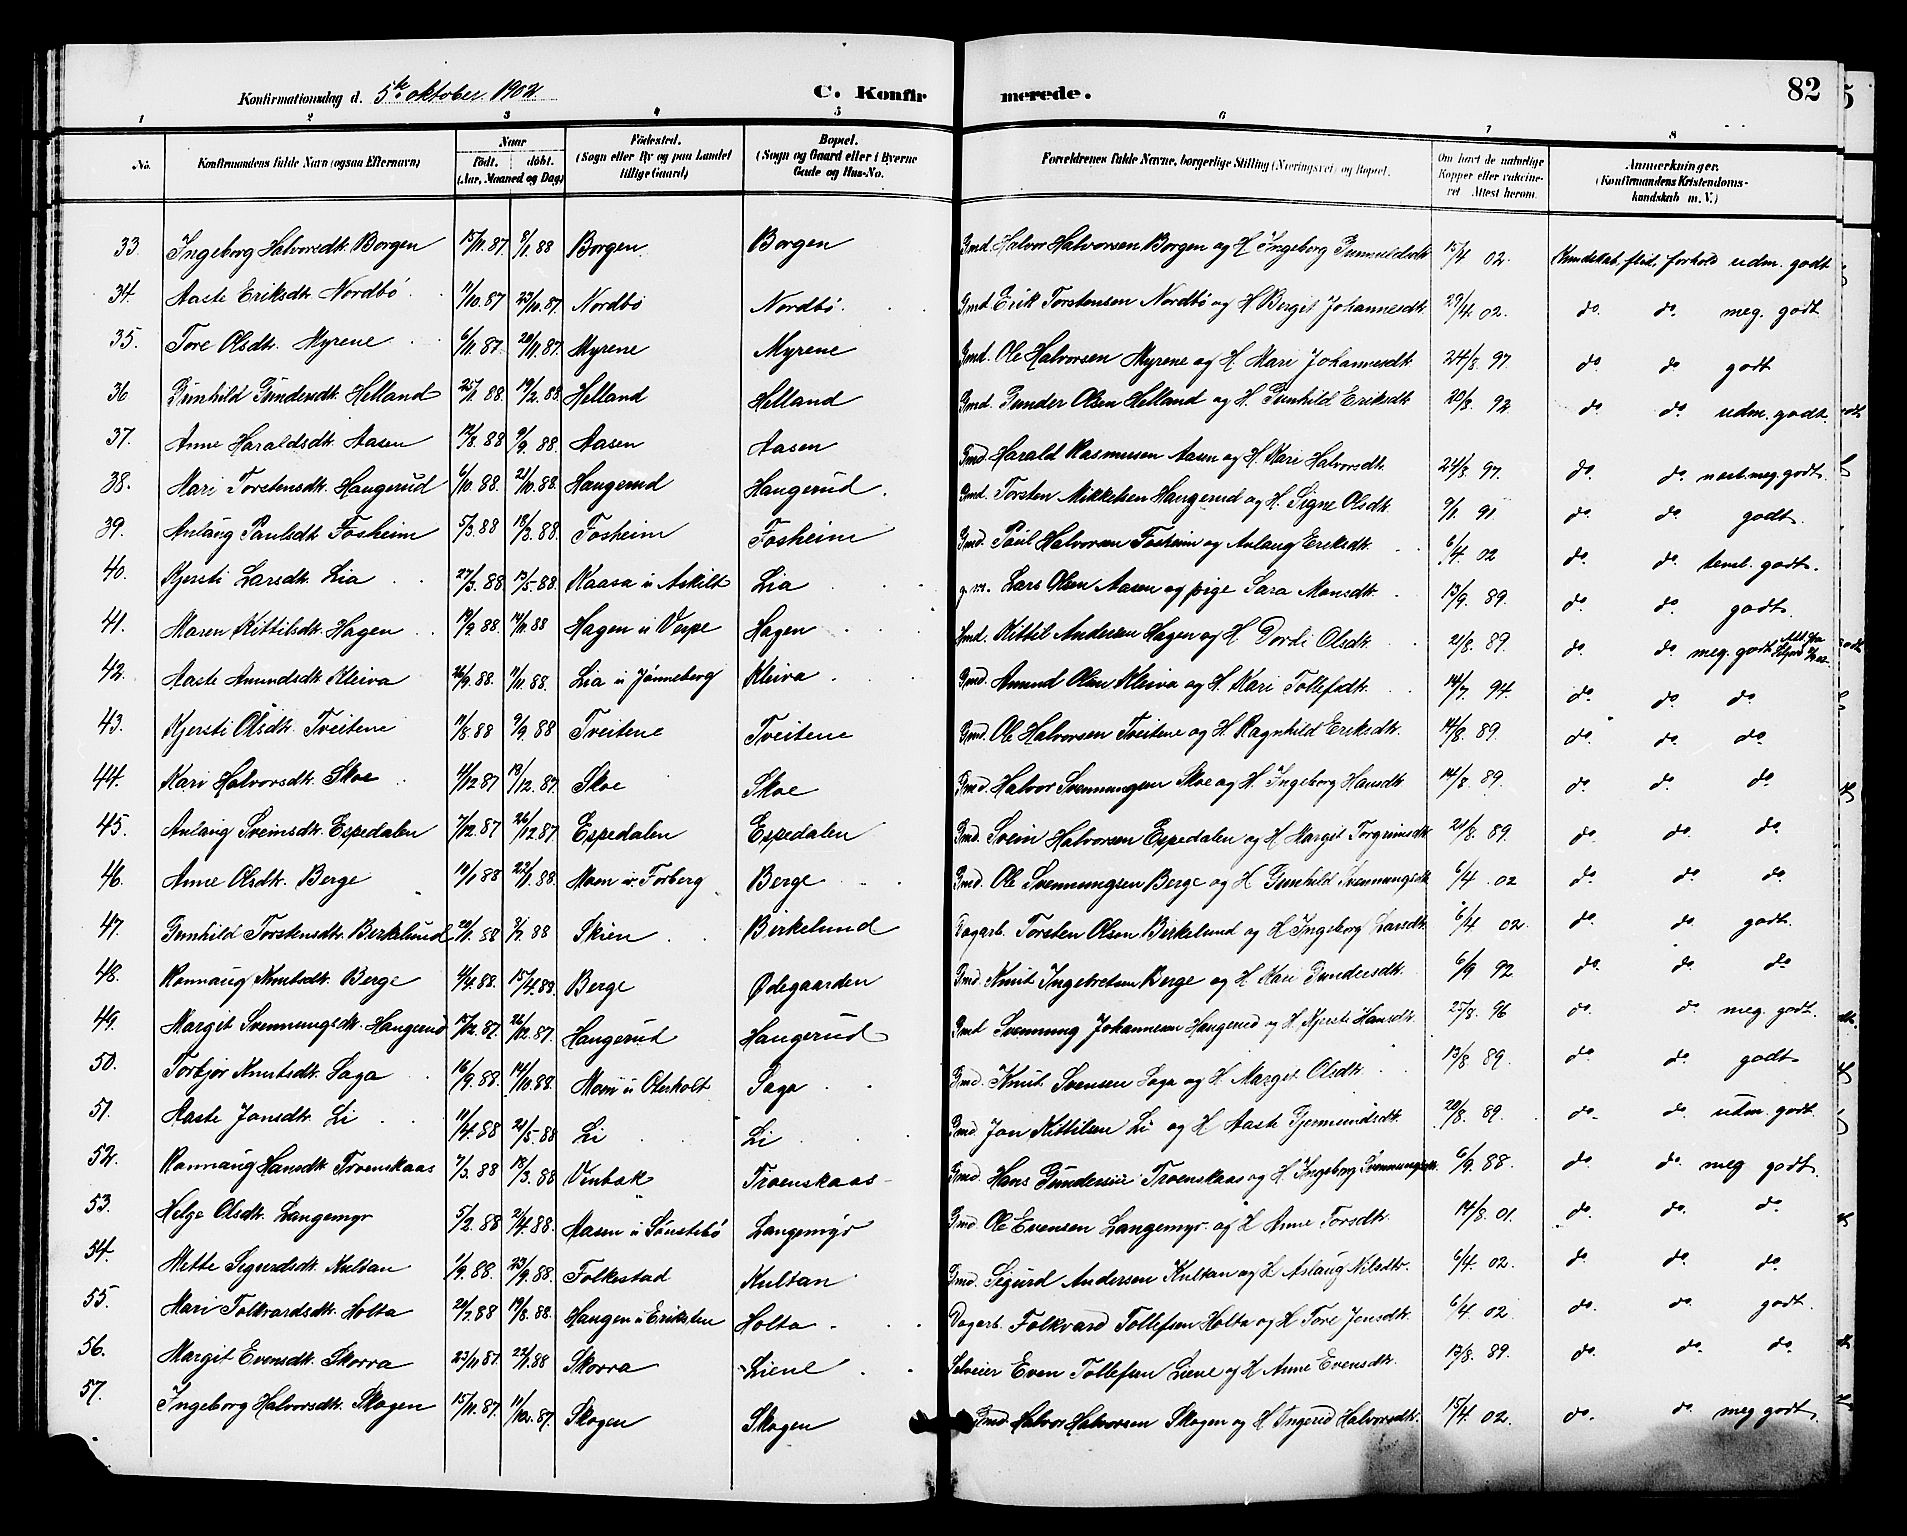 Konfirmationsdag d. 5te oktober 1902. C. Konfirmerede. 82
1 2 3 4 5 6 7 8
No. Konfirmandens fulde Navn (ogsaa Efternavn) Naar födt. döbt. (Aar, Maaned og Dag) Födested. (Sogn eller By og paa Landet tillige Gaard) Bopæl. (Sogn og Gaard eller i Byerne Gade og Hus-No. Forældrenes fulde Navne, borgerlige Stilling (Næringsvei) og Bopæl. Om havt de naturlige Kopper eller vaccineret. Attest herom. Anmærkninger. (Konfirmandens Kristendomskundskab m. V.)
33. Ingeborg Halvorsdt. Borgen 15/11 87 8/1 88 Borgen Borgen Gmd. Halvor Halvorsen Borgen og H. Ingeborg Gunnuldsdt 15/4 02. Kundskab, flid, forhold udm. godt
34. Aaste Eriksdt. Nordbö 1/10 87 23/10 87. Nordbö Nordbö. Gmd. Erik Torstensen Nordbö og H. Berget Johannesdt. 29/4 02. do. do. meg. godt
35. Tore Olsdt. Myrene 6/11 87. 20/11 87. Myrene Myrene Gmd. Ole Halvorsen Myrene og H. Mari Johannesdt. 24/8 97. do do godt
36 Gunhild Gundersdt. Helland 25/1 88 19/2 88 Helland Helland Gmd. Gunder Olsen Helland og H. Gunhild Eriksdt. 20/8 92 do do. udm. godt.
37. Anne Haraldsdt. Aasen 12/8 88 9/9 88. Aasen Aasen Gmd. Harald Rasmusen Aasen og H. Kari Halvorsdt. 24/8 97. do. do. næst. meg. godt.
38. Mari Torstensdt. Haugerud 6/10 88. 21/10 88. Haugerud Haugerud. Gmd. Torsten Mikkelsen Haugerud og H. Signe Olsdt. 9/1 91 do. do. godt.
39. Aslaug Paulsdt. Fosheim 5/3 88 18/3 88 Fosheim Fosheim Gmd. Paul Halvorsen Fosheim og Aslaug Eriksdt. 6/4 02 do. do. teml. godt.
40. Kjersti Larsdt. Lia 27/3 88 13/5 88 Kaasa u. Askilt Lia g.m. Lars Olsen Aasen og pige Sara Monsdt. 13/9 89. do. do. godt
41. Maren Kittilsdt. Hagen 19/9 88 14/11 88 Hagen u. Vespe Hagen Hmd. Kittil Andersen Hagen og H. Dordi Olsdt. 21/8 89. do. do. meg. godt
42. Aaste Amundsdt. Kleiva 26/9 88. 11/11 88. Lia u. Jönneberg Kleiva Gmd. Amund Olsen Kleiva og H. Kari Tollefsdt. 14/7 94. do. do. do
43. Kjersti Olsdt. Tveitene 11/8 88 9/9 88 Tveitene Tveitene Gmd. Ole Halvorsen Tveitene og H. Ragnhild Eriksdt. 14/8 89. do. do. do.
44. Kari Halvorsdt. Skoe 4/12 87 19/12 87. Skoe Skoe Gmd. Halvor Svennungsen Skoe og H. Ingeborg Hansdt. 14/8 89. do. do. do
45. Aslaug Sveinsdt. Espedalen 7/12 87 26/12 87 Espedalen Espedalen Gmd. Svein Halvorsen Espedalen og H. Margit Torgrimsdt. 21/8 89. do. do. do.
46. Anne Olsdt. Berge 10/1 88 22/1 88. Moen u. Forberg Berge Gmd. Ole Svennungsen Berge og H. Gunhild Svennungsdt. 6/4 02 do. do. do.
47. Gunhild Torstensdt. Birkelund 22/1 88 3/7 88 Skien Birkelund Dagarb. Torsten Olsen Birkelund og H. Ingeborg Larsdt. 6/4 02. do. do. godt.
48. Rannaug Knutsdt. Berge 4/4 88. 15/4 88 Berge Ødegaarden Gmd. Knut Ingebretsen Berge og H. Kari Gundersdt. 6/9 92 do. do. do
49. Margit Svennungsdt. Haugerud 15/12 87. 26/12 87. Haugerud Haugerud Gmd Svennung Johannesen Haugerud og H. Kjersti Hansdt. 25/8 96 do. do. meg. godt.
50. Torbjor Knutsdt. Saga 16/9 88. 14/10 88. Moen u. Oterholt Saga Gmd. Knut Svensen Saga og H. Marget Olsdt. 13/8 89. do. do. godt
51. Aaste Jonsdt. Li 11/4 88 21/5 88 Li Li Gmd. Jon Kittilsen Li og H. Aaste Gjermundsdt. 20/8 89. do. do. udm. godt
52. Rannaug Hansdt. Troenskaas 7/3 88 18/3 88 Vinbak Troenskaas Gmd. Hans Gundersen Troenskaas og H. Ingeborg Svennungsdt. 6/9 88. do. do. meg godt.
53. Helge Olsdt. Langemyr 5/2 88 2/4 88. Aasen u. Sönstebö Langemyr Gmd. Ole Evensen Langemyr og H. Anne Torsdt. 14/8 01. do. do. do.
54. Mette Sigurdsdt. Kultan 1/9 88. 23/9 88. Folkestad Kultan Gmd. Sigurd Andersen Kultan og H. Aslaug Nilsdtr. 6/4 02. do. do. do.
55. Mari Folkvardsdt. Holta 20/7 88 19/8 88. Haugen u. Eriksten Holta Dagarb. Folkvard Tollefsen Holta og H. Tore Jensdt. 6/4 02 do. do. godt.
56. Margit Evensdt. Skorra 23/11 87. 22/1 88 Skorra Liene Selveier Even Tollefsen Liene og H. Anne Evensdt. 13/8 89. do. do. do
57. Ingeborg Halvorsdt. Skogen 15/11 87. 11/12 87. Skogen Skogen Gmd Halvor Halvorsen Skogen og H. Ingerid Halvorsdt. 15/4 02. do. do. meg godt.